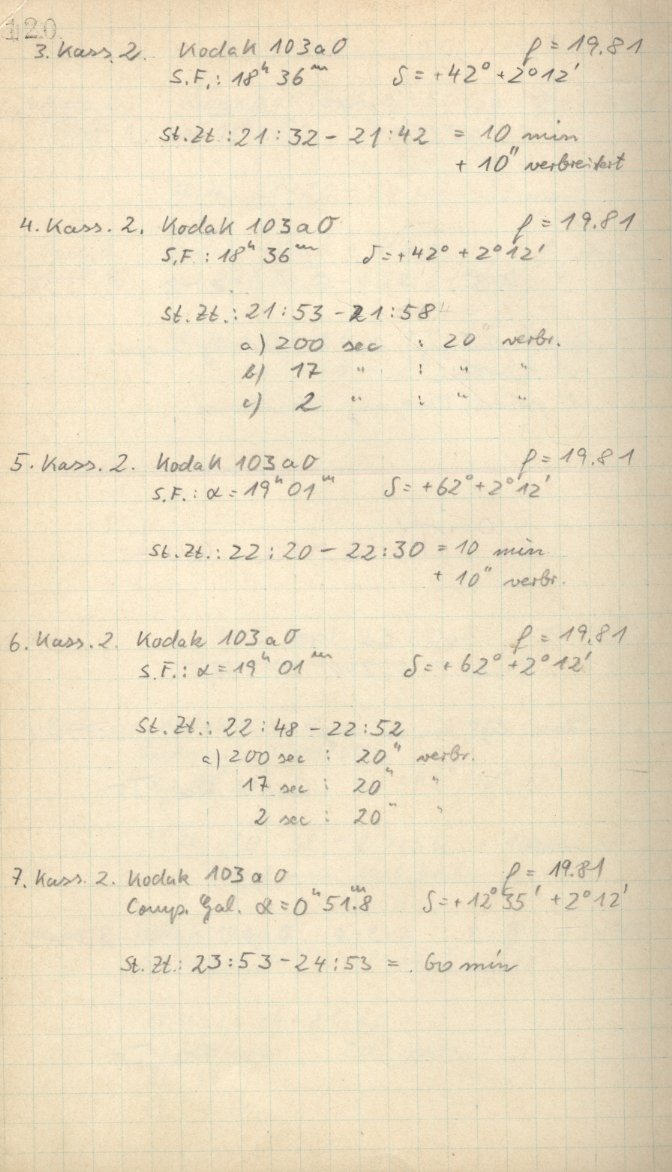 120
3. Kass. 2. Kodak 103a0 f = 19.81
S.F.: 18ʰ 36ᵐ δ = +42° + 2°12'
St. Zt.: 21:32 - 21:42 = 10 min
+ 10" verbreitert
4. Kass. 2. Kodak 103a0 f = 19.81
S.F.: 18ʰ 36ᵐ δ = +42° + 2°12'
St. Zt.: 21:53 - 21:58
a) 200 sec : 20" verbr.
b) 17 " : " "
c) 2 " : " "
5. Kass. 2. Kodak 103a0 f = 19.81
S.F.: α = 19ʰ 01ᵐ δ = +62° + 2°12'
St. Zt.: 22:20 - 22:30 = 10 min
+ 10" verbr.
6. Kass. 2. Kodak 103a0 f = 19.81
S.F.: α = 19ʰ 01ᵐ δ = +62° + 2°12'
St. Zt.: 22:48 - 22:52
a) 200 sec : 20" verbr.
17 sec : 20" "
2 sec : 20" "
7. Kass. 2. Kodak 103a0 f = 19.81
Comp. Gal. α = 0ʰ 51ᵐ.8 δ = +12°35' + 2°12'
St. Zt.: 23:53 - 24:53 = 60 min